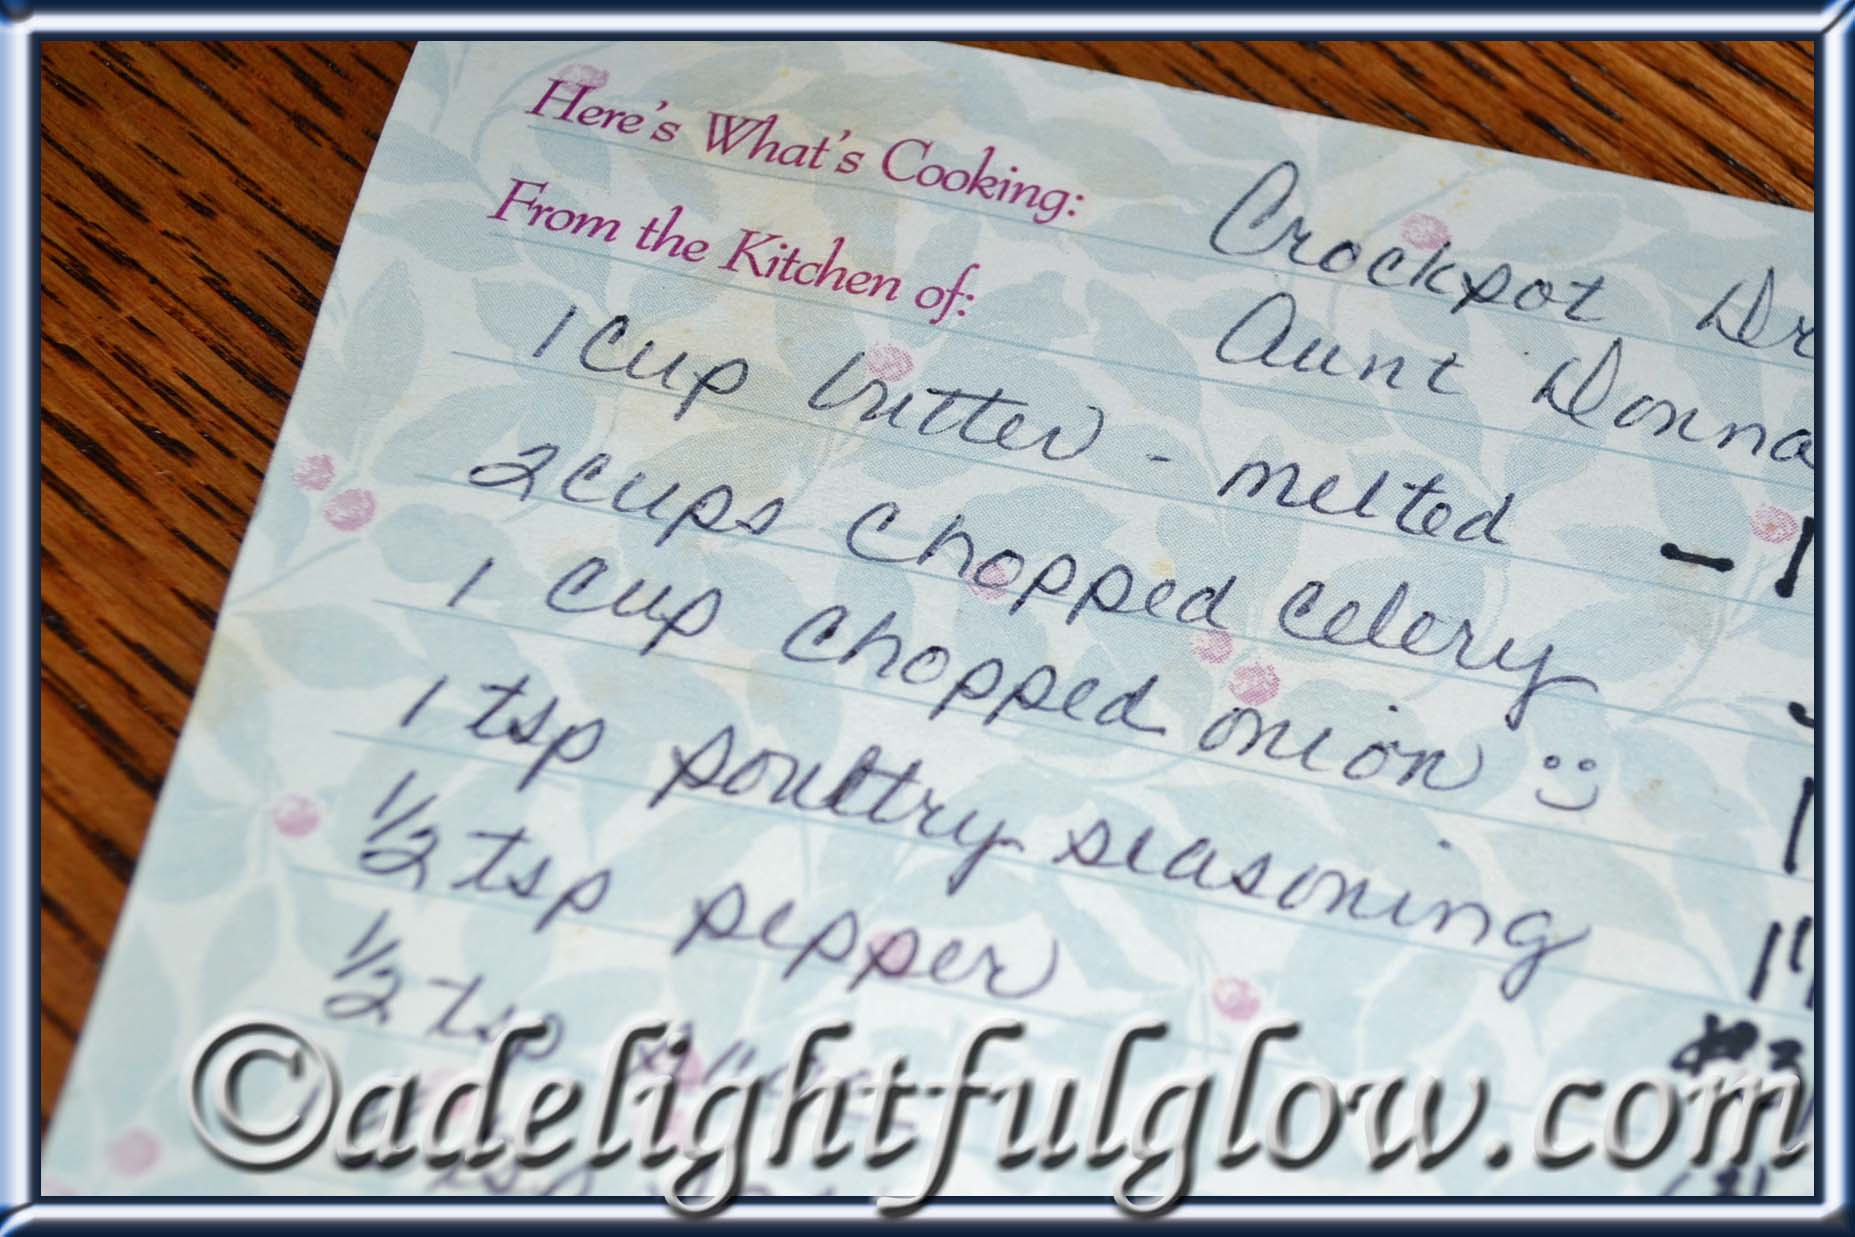 Here's What's Cooking: Crockpot Dr
From the Kitchen of: Aunt Donna
1 cup butter - melted
2 cups chopped celery - 1
1 cup chopped onion
1 tsp poultry seasoning
1/2 tsp pepper
1/2 tsp
©adelightfulglow.com